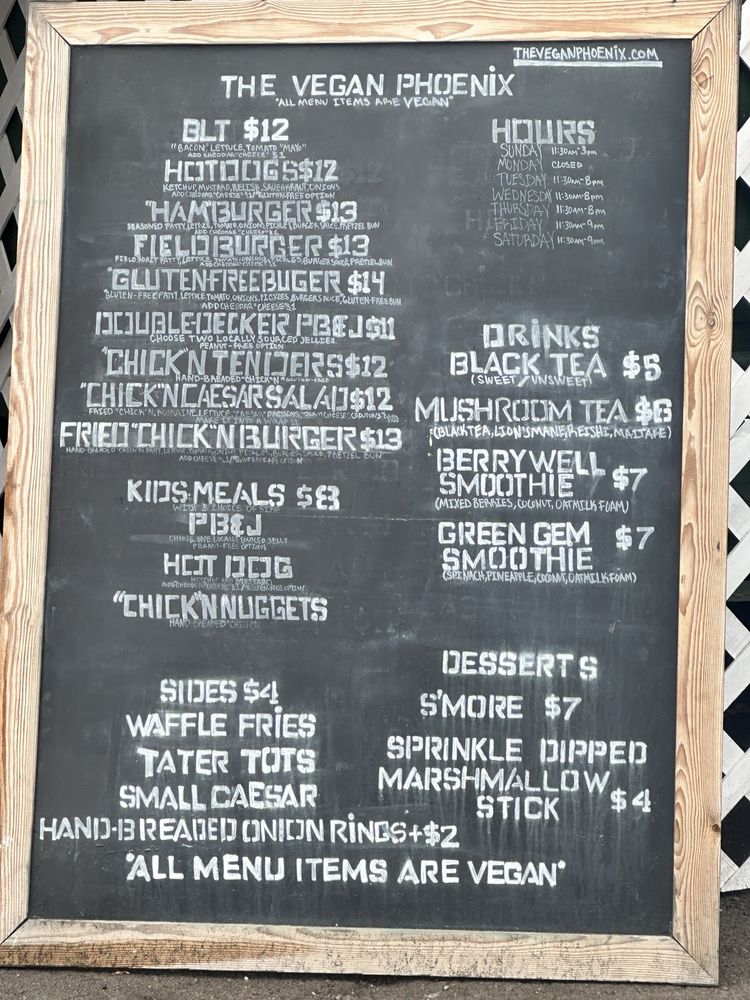 THEVEGANPHOENIX.COM
THE VEGAN PHOENIX
"ALL MENU ITEMS ARE VEGAN"
BLT $12
"BACON" LETTUCE, TOMATO "MAYO"
ADD CHEDDAR "CHEESE" $1
HOTDOGS $12
KETCHUP, MUSTARD, RELISH, SAUERKRAUT, ONIONS
ADD CHEDDAR "CHEESE" $1/"GLUTEN-FREE OPTION
"HAM"BURGER $13
SEASONED PATTY, LETTUCE, TOMATO, ONIONS, PICKLES, BURGER SAUCE, PRETZEL BUN
FIELD BURGER $13
FIELD ROAST PATTY, LETTUCE, TOMATO, ONIONS, PICKLES, BURGER SAUCE, PRETZEL BUN
GLUTEN-FREE BUGER $14
"GLUTEN-FREE PATTY, LETTUCE, TOMATO, ONIONS, PICKLES, BURGER SAUCE, GLUTEN-FREE BUN
ADD CHEDDAR "CHEESE" $1
DOUBLE-DECKER PB&J $11
CHOOSE TWO LOCALLY SOURCED JELLIES
PEANUT-FREE OPTION
"CHICK'N TENDERS $12
HAND-BREADED "CHICK'N"
"CHICK"N CAESAR SALAD $12
FRIED "CHICK'N, ROMAINE LETTUCE, "CAESAR" DRESSING,
MAKE IT INTO A WRAP $1
FRIED "CHICK'N BURGER $13
HAND-BREADED LETTUCE, TOMATO, ONION, BURGER SAUCE, PRETZEL BUN
KIDS MEALS $8
WITH A CHOICE OF SIDE
PB&J
CHOOSE ONE LOCALLY SOURCED JELLY
PEANUT-FREE OPTION
HOT DOG
"CHICK"N NUGGETS
HAND-BREADED "CHICK'N
SIDES $4
WAFFLE FRIES
TATER TOTS
SMALL CAESAR
HAND-BREADED ONION RINGS +$2
HOURS
SUNDAY 11:30AM-3PM
MONDAY CLOSED
TUESDAY 11:30AM-8PM
WEDNESDAY 11:30AM-8PM
THURSDAY 11:30AM-8PM
FRIDAY 11:30AM-9PM
SATURDAY 11:30AM-9PM
DRINKS
BLACK TEA $5
(SWEET/UNSWEET)
MUSHROOM TEA $6
(BLACK TEA, LION'S MANE, REISHI, MAITAKE)
BERRYWELL
SMOOTHIE $7
(MIXED BERRIES, COCONUT, OATMILK FOAM)
GREEN GEM $7
SMOOTHIE
(SPINACH, PINEAPPLE, COCONUT, OATMILK FOAM)
DESSERTS
S'MORE $7
SPRINKLE DIPPED
MARSHMALLOW
STICK $4
"ALL MENU ITEMS ARE VEGAN"